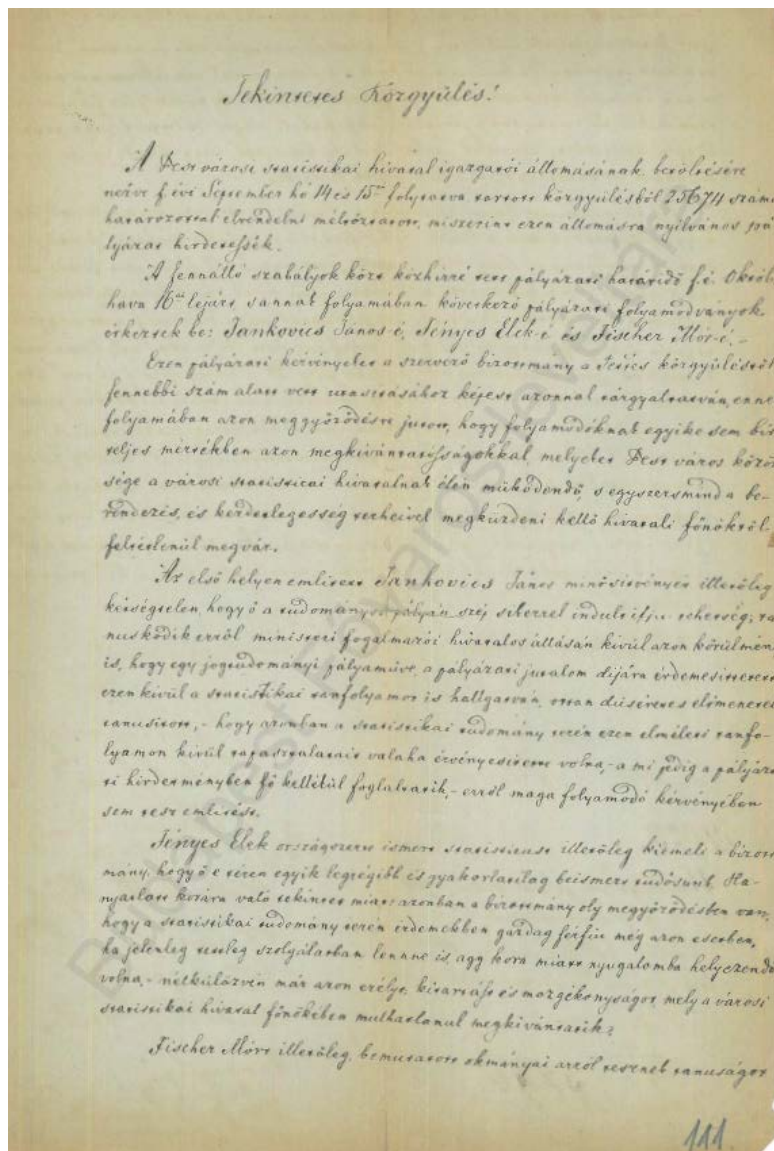 Tekintetes Közgyülés!
A Pest városi statistikai hivatal igazgatói állomásának betöltésére
nézve f. évi September hó 14 és 15én folytatva tartott közgyülésből 25674 számu
határozattal elrendelni méltóztatott, miszerint ezen állomásra nyilvános pá
lyázat hirdetessék.
A fennálló szabályok közt közhirré tett pályázati határidő f. é. Októb
hava 16án lejárt s annak folyamában következő pályázati folyamodványok
érkeztek be: Jankovics János-é, Fényes Elek-é és Fischer Mór-é.-
Ezen pályázati kérvényeket a szervező bizottmány a Tettes közgyüléstől
fennebbi szám alatt vett utasitásához képest azonnal tárgyaltatván, enne
folyamában azon meggyőződésre jutott, hogy folyamodóknak egyike sem bir
teljes mértékben azon megkivántatósságokkal, melyeket Pest város közön
sége a városi statisticai hivatalnak élén müködendő, s egyszersmind a be-
rendezés, és kezdetlegesség terheivel megküzdeni kellő hivatali főnöktől
feltétlenül megvár.
Az első helyen emlitett Jankovics János minősitvényét illetőleg
kétségtelen, hogy ő a tudományos pályán szép sikerrel indult ifju tehetség; ta
nuskodik erről ministeri fogalmazói hivatalos állásán kivül azon körülmén
is, hogy egy jogtudományi pályamüve, a pályázati jutalom dijára érdemesittetett
ezen kivül a statistikai tanfolyamot is hallgatván, ottan dicséretes előmenetel
tanusitott,- hogy azonban a statistikai tudomány terén ezen elméleti tanfo-
lyamon kivül tapasztalatait valaha érvényesitette volna,- a mi pedig a pályáza
ti hirdetményben fő kellékül foglaltatik,- erről maga folyamodó kérvényében
sem tesz emlitést.
Fényes Elek országszerte ismert statisticust illetőleg kiemeli a bizott
mány, hogy ő e téren egyik legrégibb és gyakorlatilag beismert tudósunk. Ha-
nyatlott korára való tekintet miatt azonban a bizottmány oly megyőződésben van,
hogy a statistikai tudomány terén érdemekben gazdag férfiu még azon esetben,
ha jelenleg tettleg szolgálatban lennne is, agg kora miatt nyugalomba helyezendő
volna,- nélkülözvén már azon erélyt, kitartást és mozgékonyságot mely a városi
statistikai hivatal főnökében mulhatlanul megkivántatik;
Fischer Mórt illetőleg, bemutatott okmányai arról tesznek tanuságot
111.